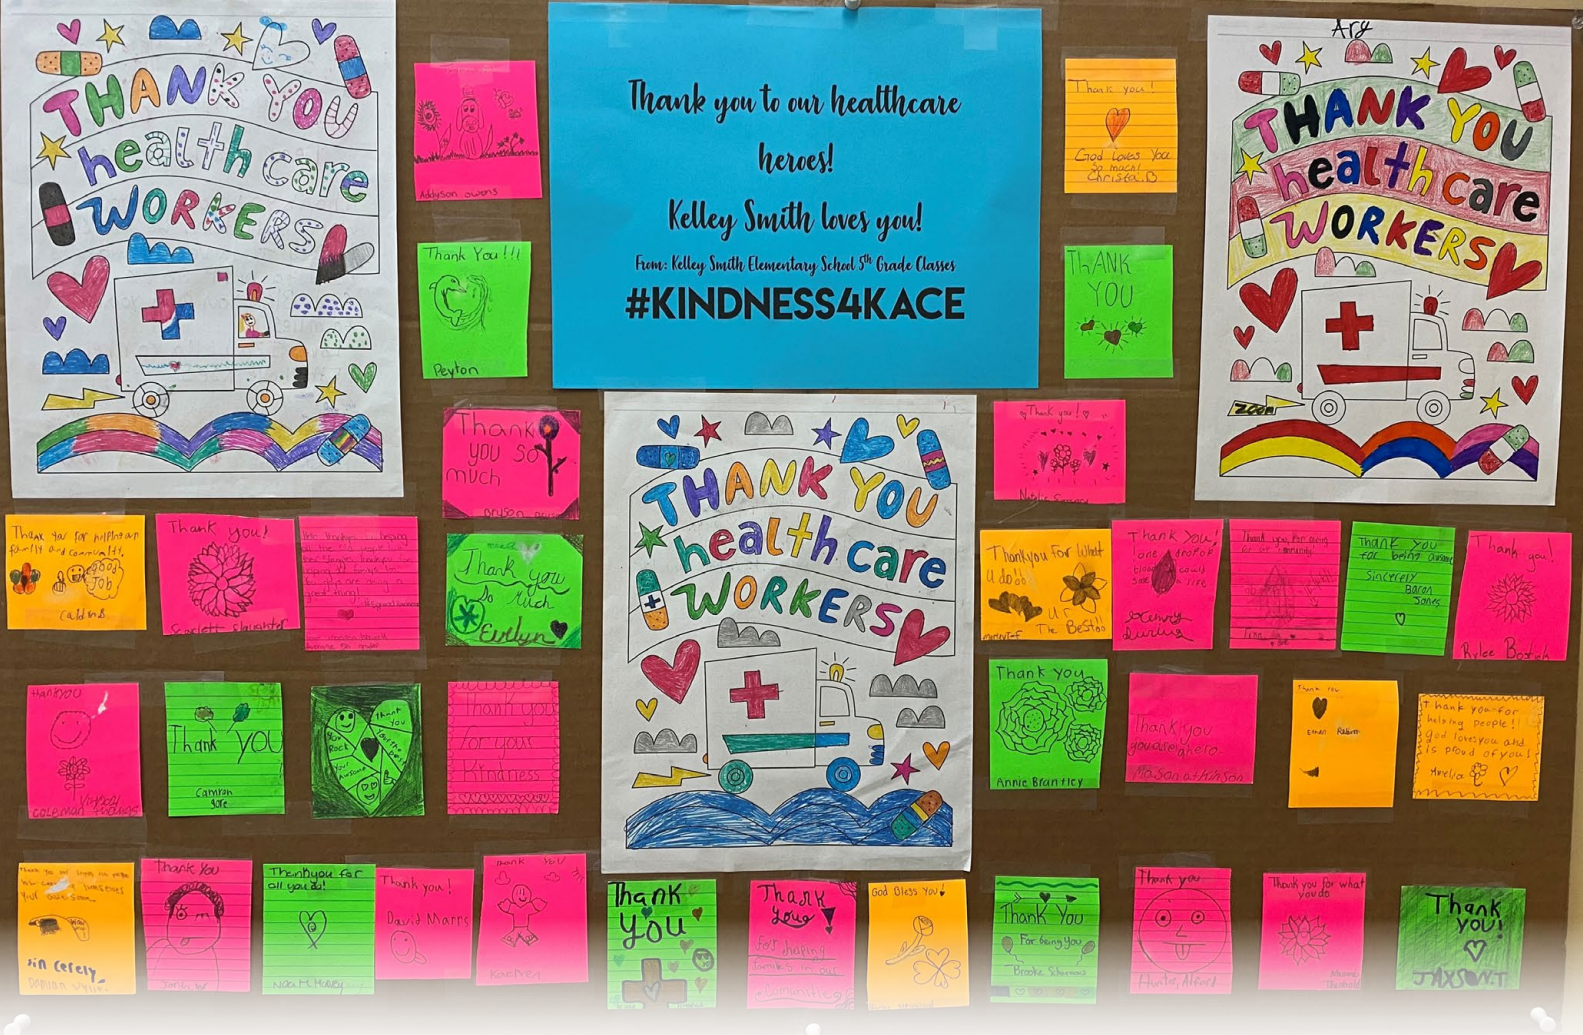 THANK YOU
health care
WORKERS
Addyson owens
Thank You!!!
Peyton
Thank you to our healthcare
heroes!
Kelley Smith loves you!
From: Kelley Smith Elementary School 5th Grade Classes
#KINDNESS4KACE
Thank you!
God Loves You
so much!
Christa.B
THANK
YOU
Ary
THANK YOU
health care
WORKERS
ZOOM
Thank
you so
much
THANK YOU
health care
WORKERS
Thank you!
Thank You for helping our
family and community.
good
Job
Thank you!
Scarlett Slaughter
Thank you
So Much
Evelyn
Thankyou For What
U do
U r
The Best
Thank you!
one drop of
blood could
save a life
Thank you
for being awesome
Sincerely
Baron
Jones
Thank you!
Rylee Bostick
thankyou
COLEMAN
Thank You
Camron
gore
Thank
You
You
Rock
Your
Awesome
Thank you
for your
Kindness
Thank you
Annie Brantley
Thankyou
youareahero
Mason atkinson
Thank you
Ethan
thank you for
helping people!!
god loves you and
is proud of you!
Amelia
sin cerely,
Thank You
Thankyou for
all you do!
Thank you!
David Marrs
Thank you
Thank
you
Thank
you
for helping
families in our
Communitie
God Bless You!
Thank You
For being You
Brooke
Thank you
Hunter, Alford
Thank you for what
you do
Thank
you!
JAXSON.T